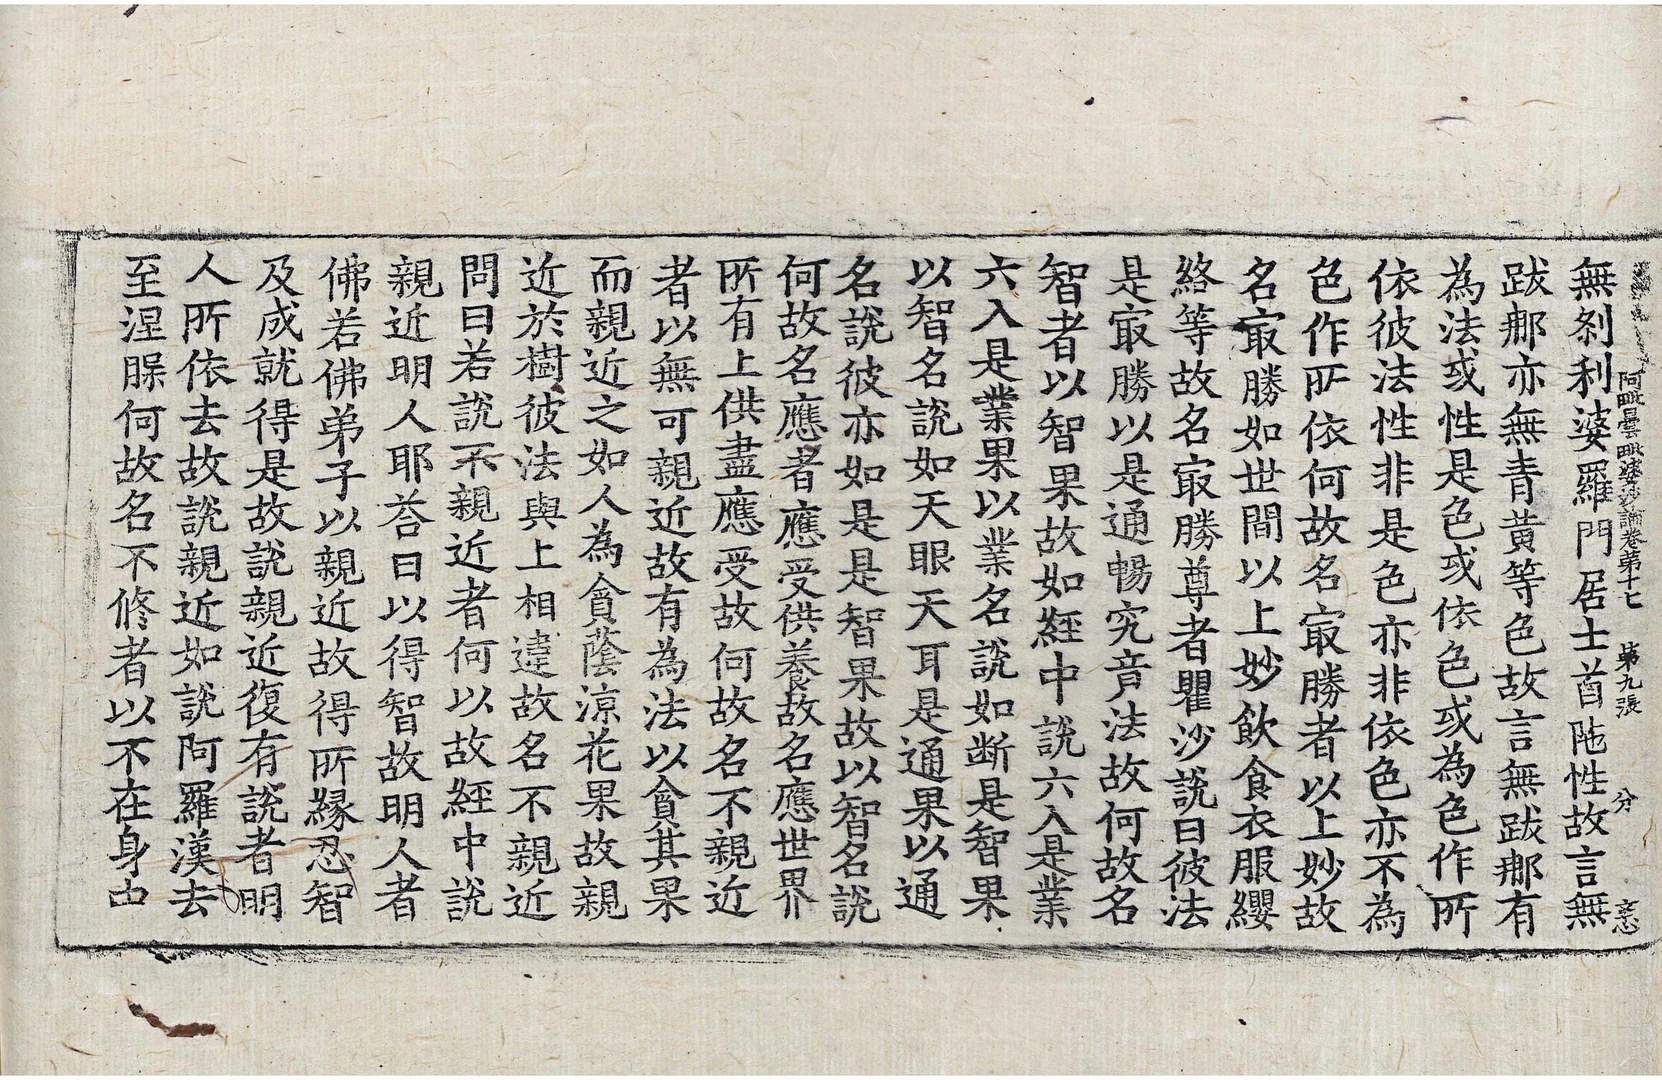 阿毗曇毗婆沙論卷第十七 第九張 分 忘
無刹利婆羅門居士首陁性故言無
跋郍亦無青黄等色故言無跋郍有
為法或性是色或依色或為色作所
依彼法性非是色亦非依色亦不為
色作所依何故名㝡勝者以上妙故
名㝡勝如世間以上妙飲食衣服纓
絡等故名㝡勝尊者瞿沙說曰彼法
是㝡勝以是通暢究竟法故何故名
智者以智果故如經中說六入是業
六入是業果以業名說如断是智果
以智名說如天眼天耳是通果以通
名說彼亦如是是智果故以智名說
何故名應者應受供養故名應世界
所有上供盡應受故何故名不親近
者以無可親近故有為法以貪其果
而親近之如人為貪蔭涼花果故親
近於樹彼法與上相違故名不親近
問曰若說不親近者何以故經中說
親近明人耶荅曰以得智故明人者
佛若佛弟子以親近故得所緣忍智
及成就得是故說親近復有說者明
人所依去故說親近如說阿羅漢去
至涅槃何故名不修者以不在身中